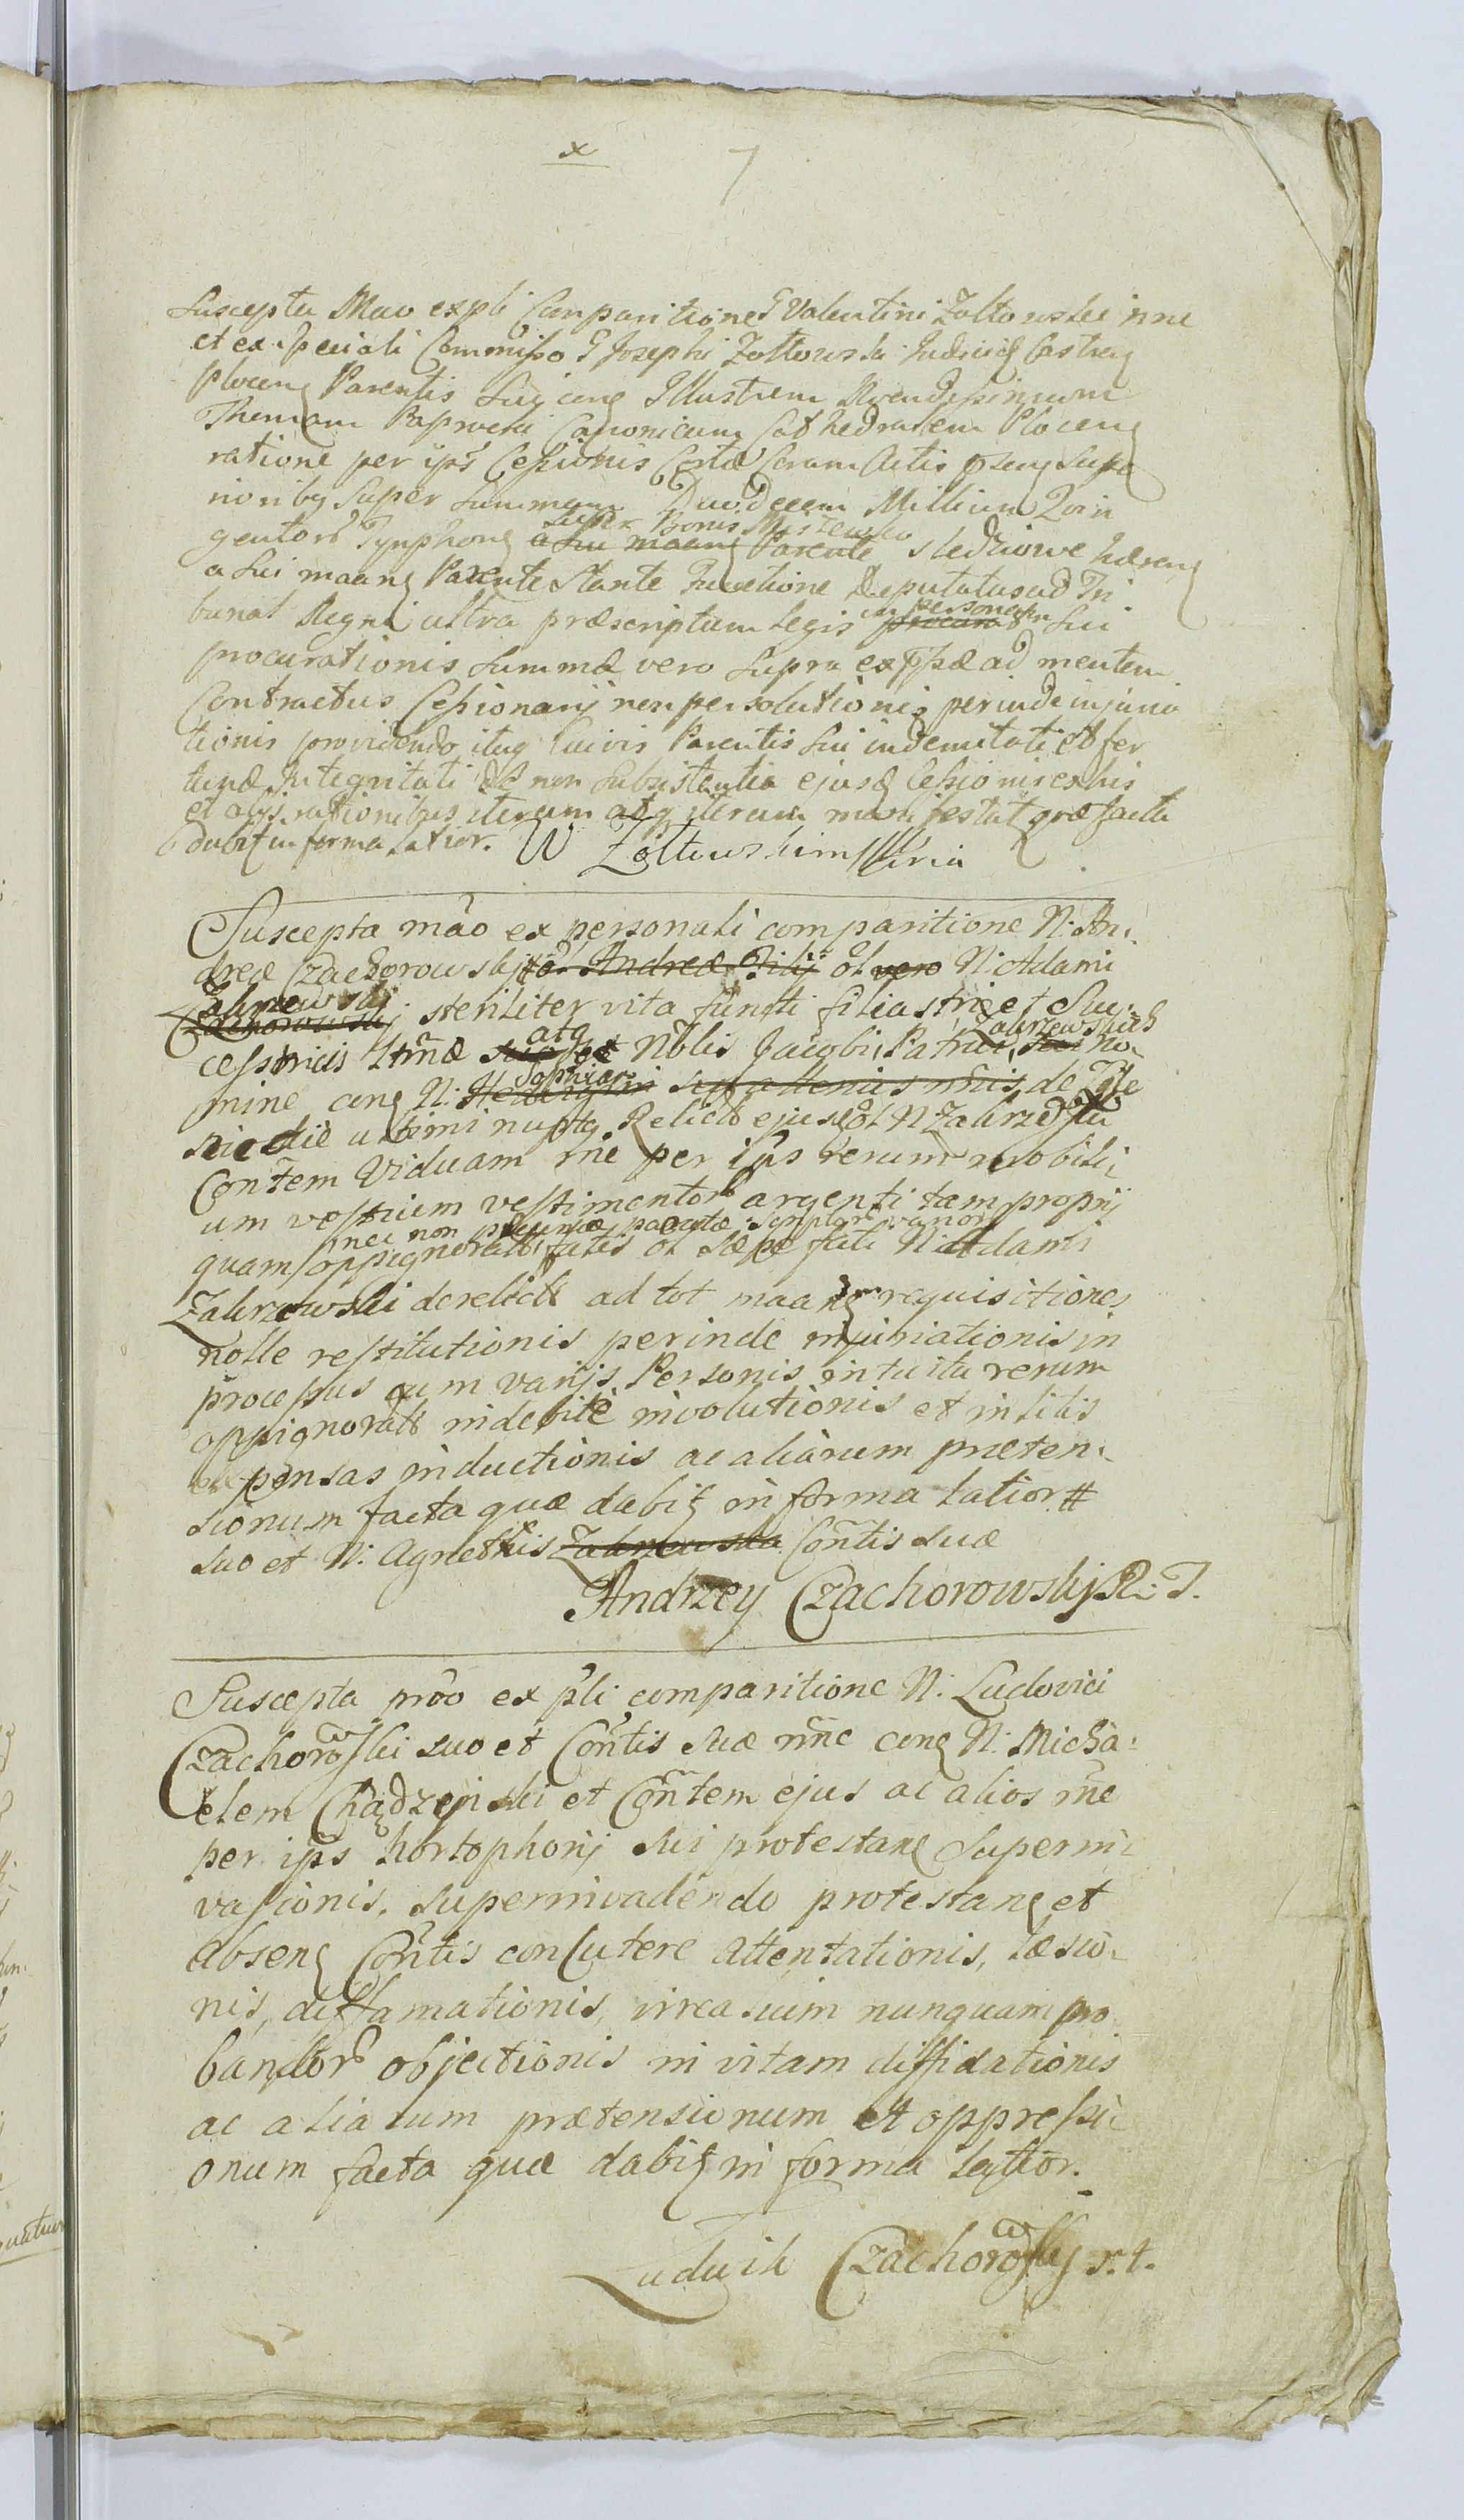 x 7
Suscepta Mao ex pli Comparitione G Valentini Zołtowski nne
et ex Speciali Commisso G Josephi Zołtowski Judicis Castren
Plocen Parentis Sui con Illustrem Rvendissimum
Thomam Paprocki Canonicum Cathedralem Plocen
ratione per ips Cessionis Certæ Coram Actis psen Supe
rioribq Super Summam Duodecem Millium Quin
gentor Tynphon super Bonis Mislewko a Sui maang Parente Sledziowe hæren
a Sui maang Parente Stante Functione Deputatus ad Tri
bunal Regni ultra præscriptum legis in personam Sui
procurationis Summæ vero Supra expssæ ad mentem
Contractus Cessionarij non persolutionis perinde injuria
tionis providendo itaq Parentis Sui indemnitati et for
tunæ Integritati et non Subsistentia ejusd Cessionis ex his
et alijs rationibus iterum atq iterum manifestat quæ facta
dabit in forma latior. W Zołtowski mpria
Suscepta mao ex personali comparitione N: An:
dreæ Czachorowskj to Andreæ Filij ol vero N: Adami
Zakrzewski Czachorowskj steriliter vita functi filiastri et Suc:
cessoricis ltmæ atq Nblis Jacobi Patrui Zakrzewskich no:
mine con N: Sophiam de
ultimi nupta Relictā ejusd ol N Zakrzewski
Contem Viduam rne per ips rerum mobili:
um vestium vestimentor argenti tam proprij
nec non pecuniæ paratæ script varior
quam oppignorati fatis ol sæpe fati N: Adami
Zakrzewski derelict ad tot maang requisitiones
nolle restitutionis perinde injuriationis in
processus cum varijs Personis intuitu rerum
oppignorat indebite involutionis et in litis
expensas inductionis ac aliarum præten:
sionum facta quæ dabit in forma latior #
suo et N: Agnethis Zakrzewska Contis suæ
Andrzey Czachorowskj R: T.
Suscepta mao ex pli comparitione N: Ludovici
Czachorowski suo et Contis suæ nne con N: Micha:
elem Chądzyński et Contem ejus ac alios rne
per ips hortophorij sui protestan Superin:
vasionis, superinvadendo protestan et
absen Contis concutere attentationis, læsio:
nis, diffamationis, circa suim nunquam pro
bandor objectionis in vitam diffidationis
ac aliarum prætensionum et oppressi:
onum facta quæ dabit in forma latior.
Ludwik Czachorowskj r. t.